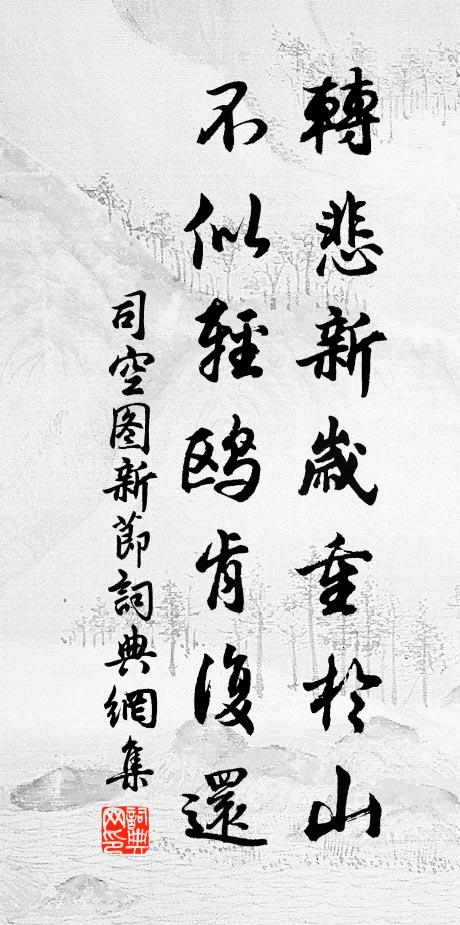 轉悲新歲重於山
不似輕鷗肯復還
司空图新節詞典網集
詞典网印